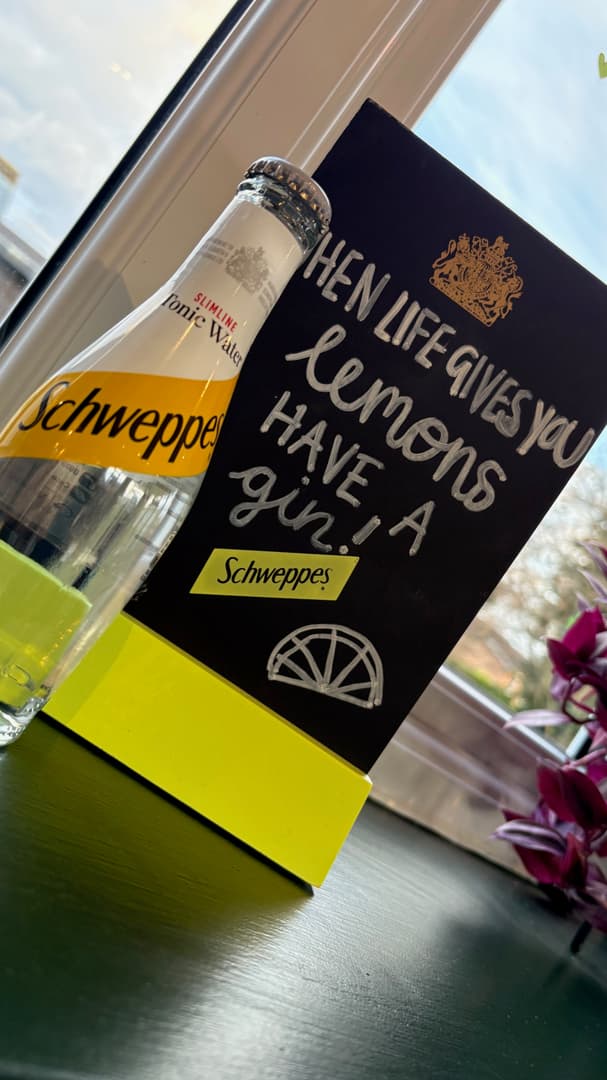 SLIMLINE
Tonic Water
Schweppes
WHEN LIFE GIVES YOU
lemons
HAVE A
gin!
Schweppes